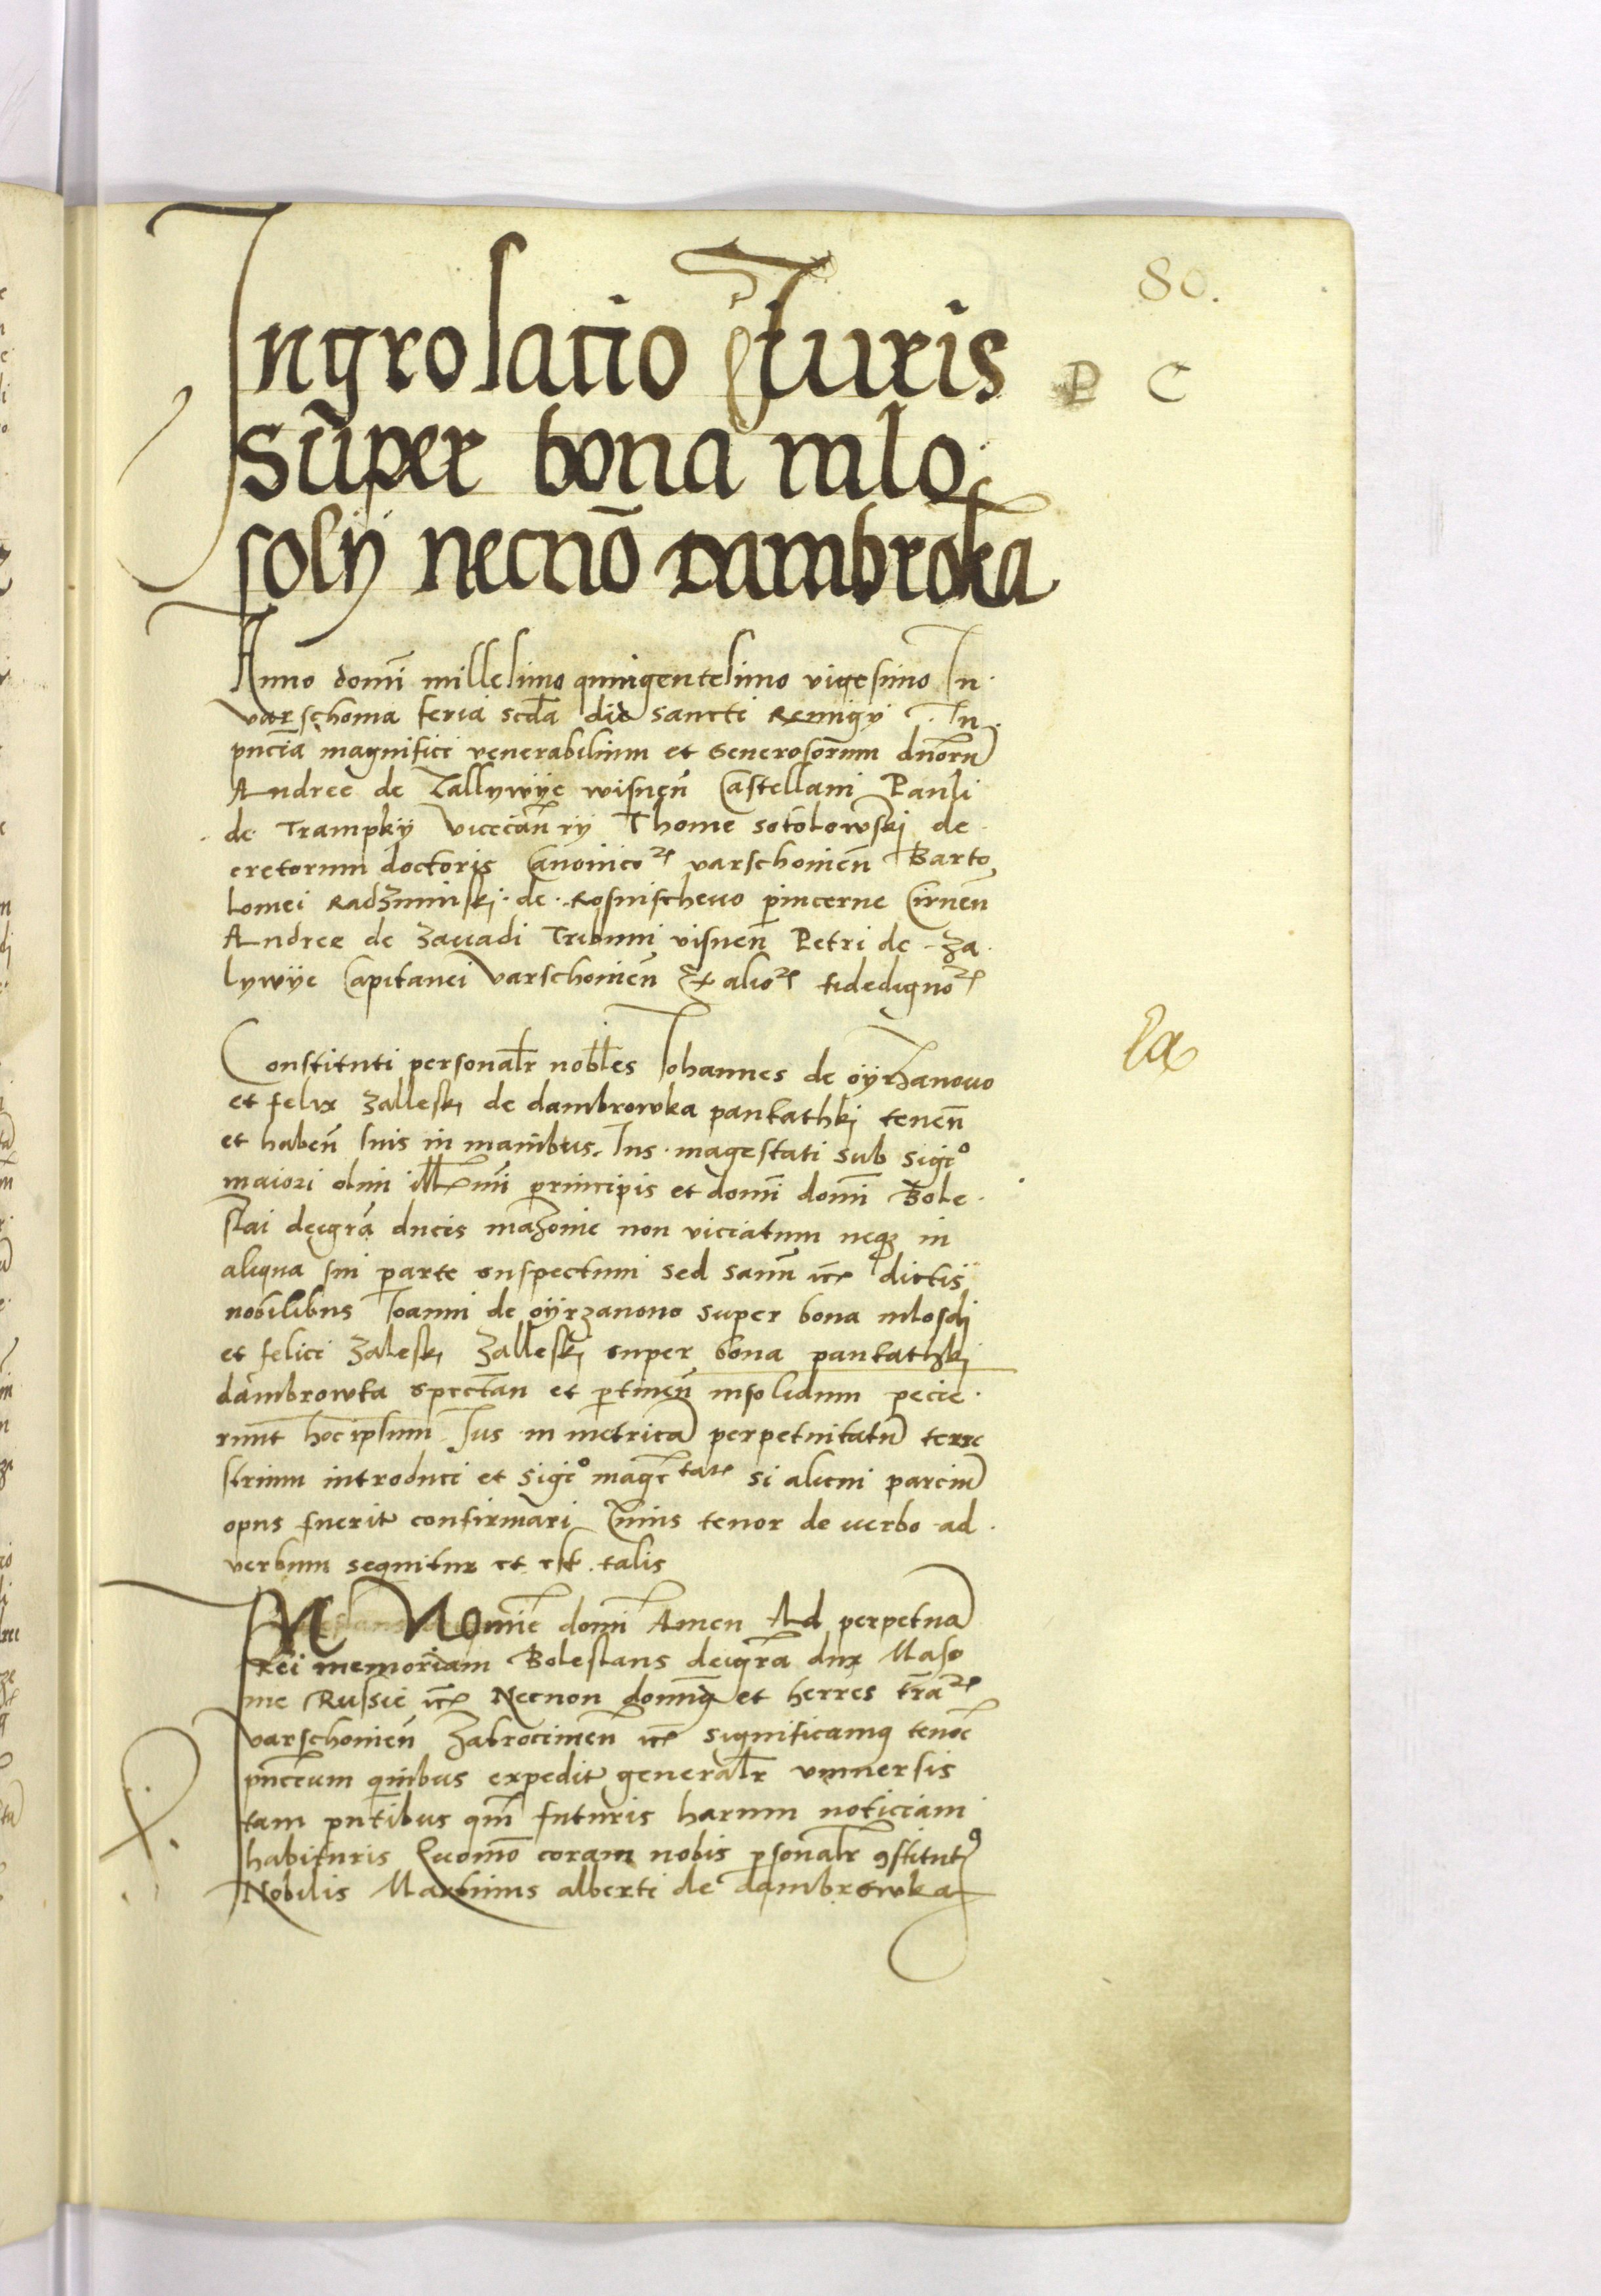 80.
Ingrosacio Juris
P C
super bona mlo
soly necnō dambroka
Anno domī millesimo quingentesimo vigesimo In
varschouia feria scda die sancti Remigij In
pnciā magnifici venerabilium et Generosorum dnorū
Andree de Zallywÿe wisneñ Castellani Pauli
de Trampkÿ vicecanrij Thome sokolowskj de
cretorum doctoris Canonico℞ varschouieñ Barto
lomei Radziminskj de Rosnischeuo pincerne Cirneñ
Andree de Zauadi Tribuni visneñ Petri de Za
lywÿe Capitanei varschouieñ Et alio℞ fidedigno℞
Constituti personalr nobles Johannes de oÿrzanouo
la
et felix Zalleskj de dambrowka pankathkj teneñ
et habeñ suis in manibus Jus magestati sub sigio
maiori olim illmi principis et domī domī Bole
slai deigrā ducis mazouie non viciatum neqz in
aliqua sui parte suspectum sed sanū etc dictis
nobilibus Joanni de oÿrzanouo super bona mlosdj
et felici Zaleskj Zalleskj super bona pankathkj
dambrowka spectan et ptineñ insolidum pecie
runt hoc ipsum Jus in metricā perpetuitatū terre
strium introduci et sigio magētate si alicui parciū
opus fuerit confirmari Cuius tenor de verbo ad
verbum sequitur et est talis
IN Nomīe domī Amen Ad perpetuā
Rei memoriam Boleslaus deigrā dux Maso
uie Russie etc Necnon domīq et herres trā℞
varschouieñ Zakrocimeñ etc significamq tenoē
pncium quibus expedit generalr vniuersis
tam pntibus qm futuris harum noticiam
habituris Quomō coram nobis psonalr ꝯstitutꝰ
Nobilis Martinus alberti de dambrowka